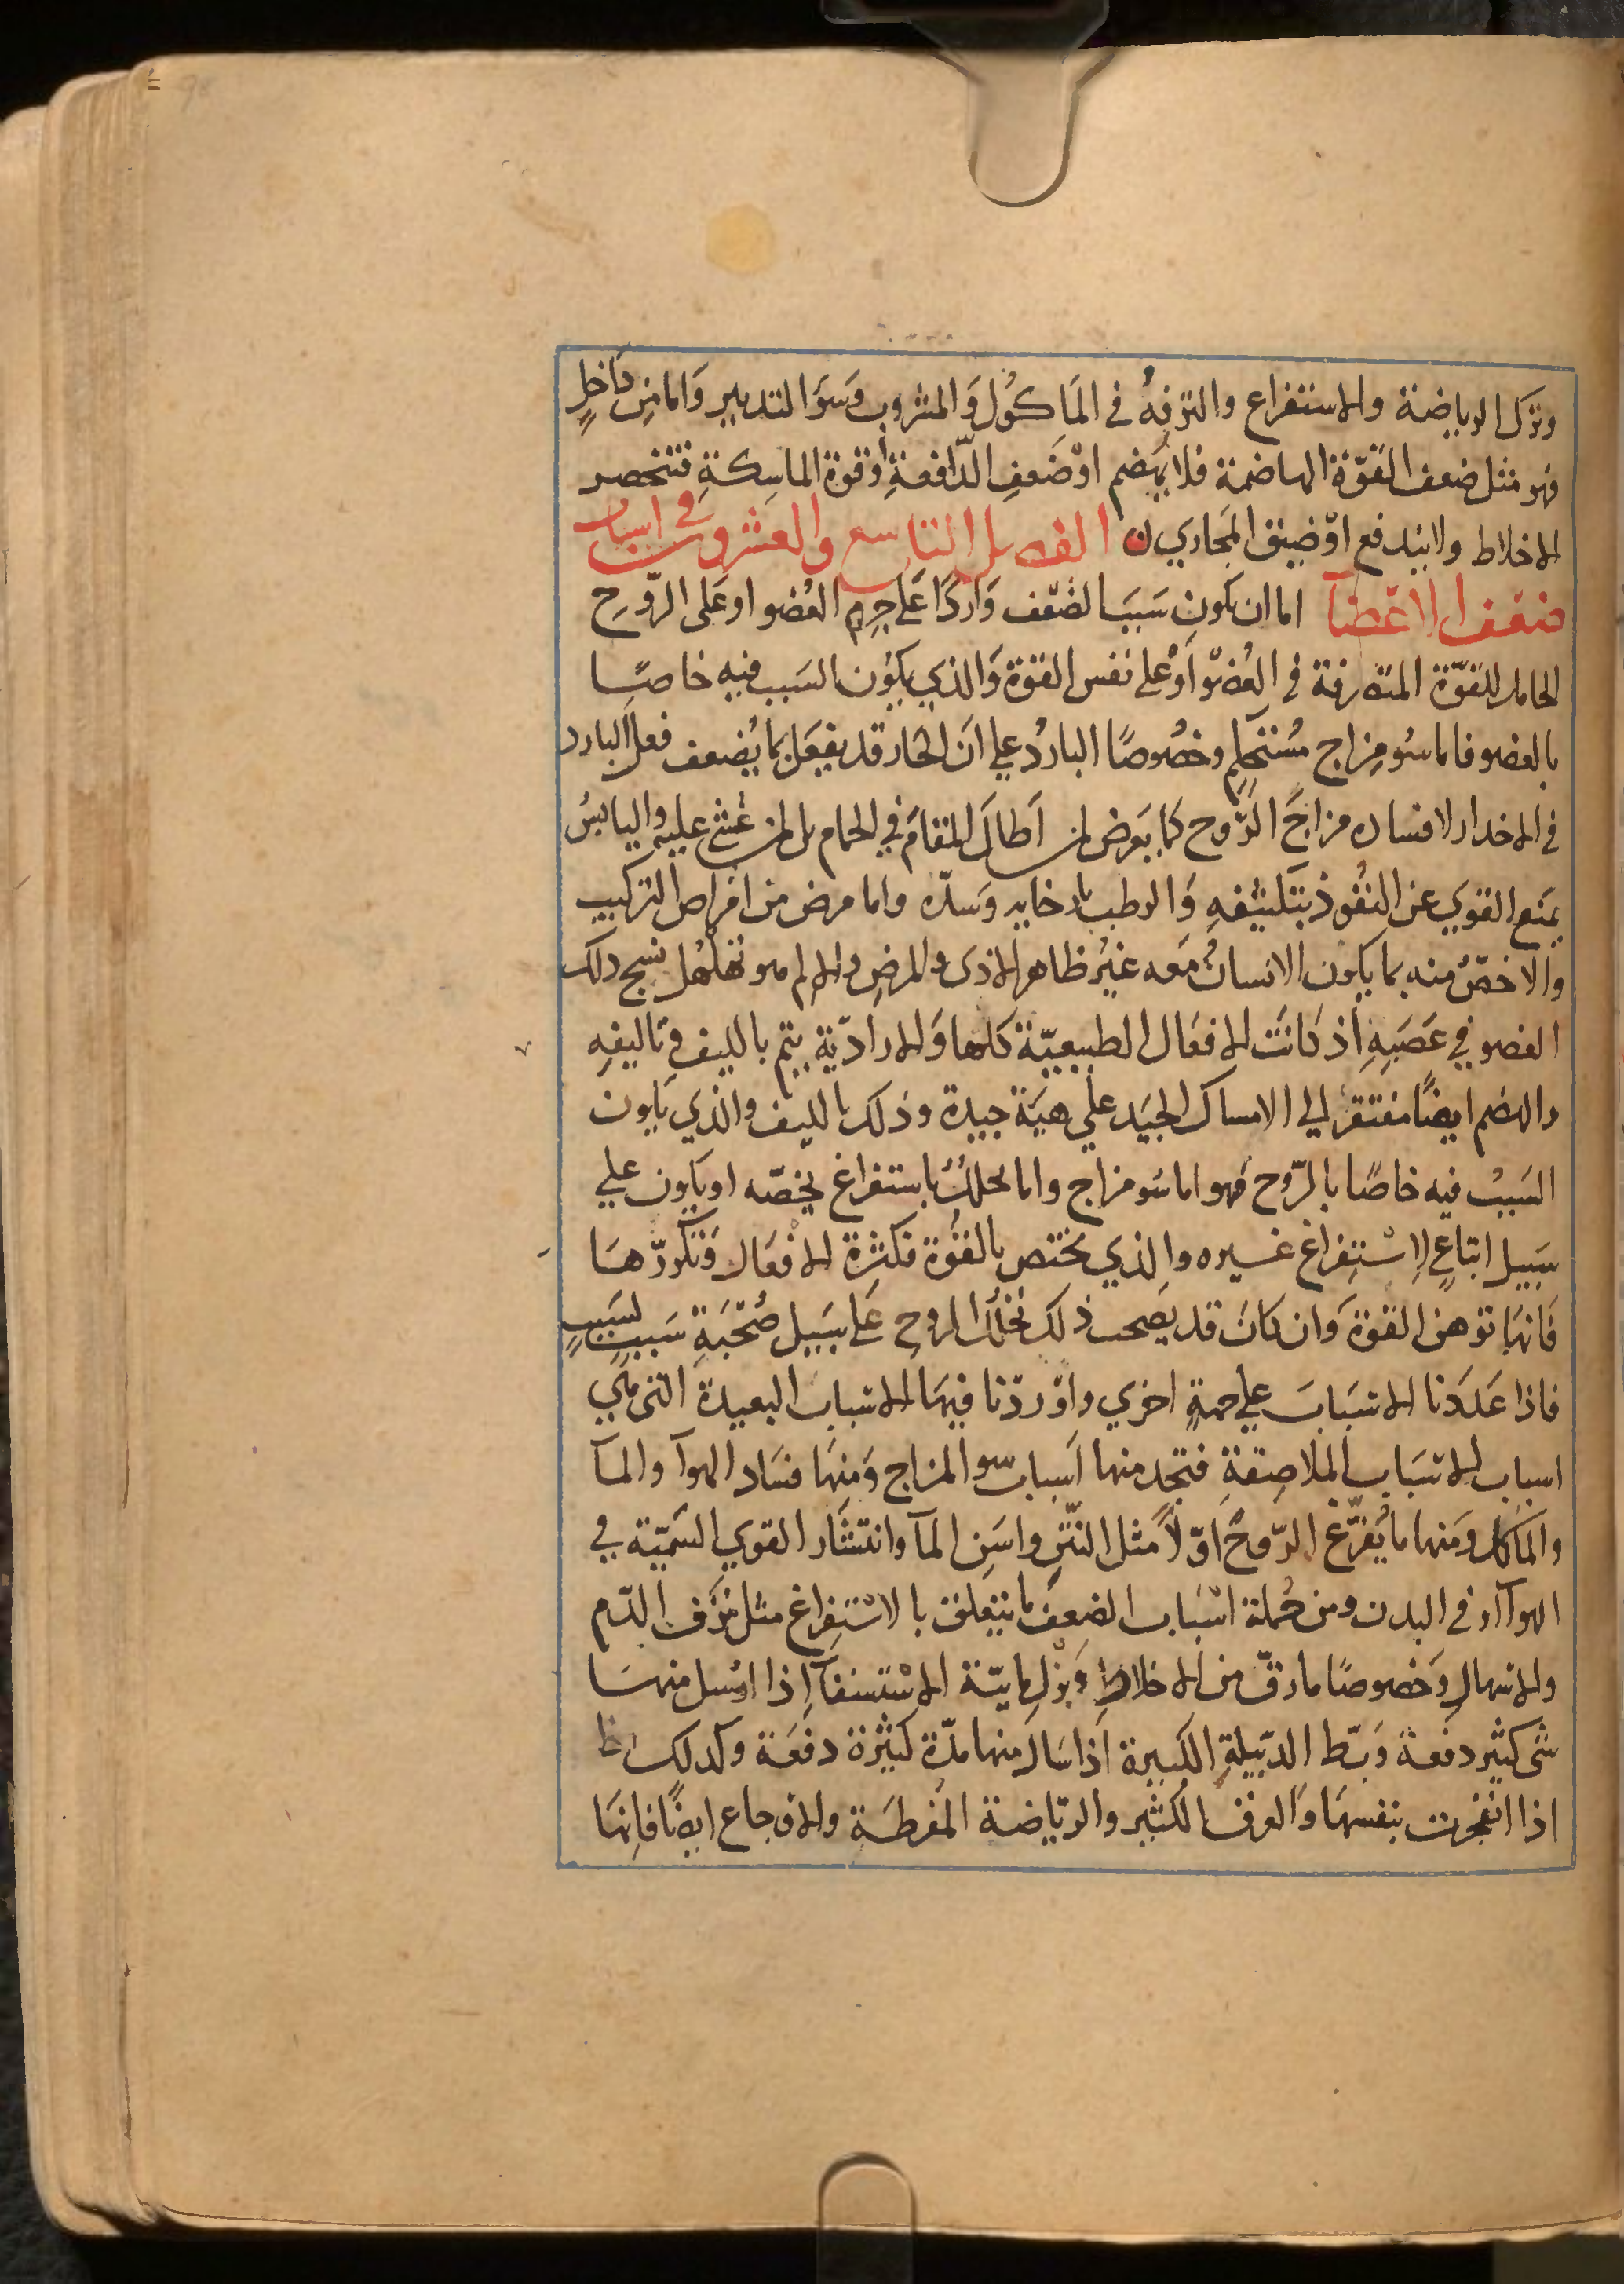 وترك الرياضة والاستفراغ والترفه في المَاكوُل وَالمشروب وَسوَ التدبير وَاما مِن دَاخلٍ
فهو مثل ضعف القوّة الهاضمة فلا يهضم اوْ ضَعفِ الدّافعةِ أوقوة الماسِكةِ فتنحصر
الاخلاط ولا يندفع اوْ ضيق المجَاري ن الفصل التاسع والعشرون في اسباب
ضعف الاعضآ اما ان يكون سَبَبَ الضّعف وَاردًا عَلى جِرم العُضو او عَلى الرّوحِ
الحامل للقوّة المتصرفة في العُضو أوْ على نفس القوة وَالذي يكوُن السَبب فيه خاصًا
بالعضو فاما سُو مِزاج مُستحكم وخصُوصًا الباردُ علي انَ الحَار قد يفعَل بما يُضعف فعل البارد
في الاخدار لافساده مزاجَ الرّوح كما يَعرض لمن اَطالَ المقامَ في الحمام بل لمن غُشي عليه واليابسُ
يمنَع القوي عن النفُوذ بتَلثيفهِ وَالرطب بارخايه وَسدّه واما مرض من امراض التركيب
والاخصّ منه بما يكون الانسانُ مَعه غيرُ ظاهر الاذى والمرضِ والالم هو تهلهل نسج ذلك
العضو في عَصَبِهِ أذ كانَت الافعَال الطبيعيّة كلها وَالاراديّة يتم بالليف في تاليفهِ
والهضم ايضًا مفتقر الي الامساك الجيَد علي هيَة جيدة وذلك بالليف والذي يكون
السَببُ فيه خاصًا بالرّوح فهو اما سُو مزاج واما تحللٌ باستفراغ يخصّه او يكون علي
سَبيل اتباعٍ لاِسْتِفراغ غسيره والذي يختص بالقوُة فكثرة الافعَال وَتكررّهَا
فَانها توهن القوة وَان كانَ قد يَصحب ذلك تحَلّل الروح عَلى سَبيل صُحْبَةِ سَببٍ لسَببٍ
فاذا عَدَدَنا الاسَبَابَ علي جهةٍ اخري واوْردْنا فيهَا الاسباب البعيدة التي هي
اسباب الاسَباب الملاصِقةِ فتجد منها أسباب سو المزاج وَمنهَا فسَاد الهوآ والمآ
والمآكل وَمنها ما يُفزّع الرّوحَ اوّلاً مثل النّتنِ واسَنِ المآ وانتشَار القوي السّميّة في
الهوآ او في البدن ومن جُملة اسْبَاب الضعف ما يتعلق بالاسْتِفراغ مثل نَزف الدّم
والاسهالِ وَخصوصًا ما رقّ من الاخلاط وَبزْلِ مايَّة الاسْتسقآ إذا ارُسل منهَا
شى كثير دفعة وَبَط الدّبيلةِ الكبيرة اذا سَال منها مدّة كثيرة دفعَة وكذلك
اذا انفجرت بنفسهَا وَالعرق الكثير والرّياضة المفرطَة والاوجاع ايضًا فانِهَا